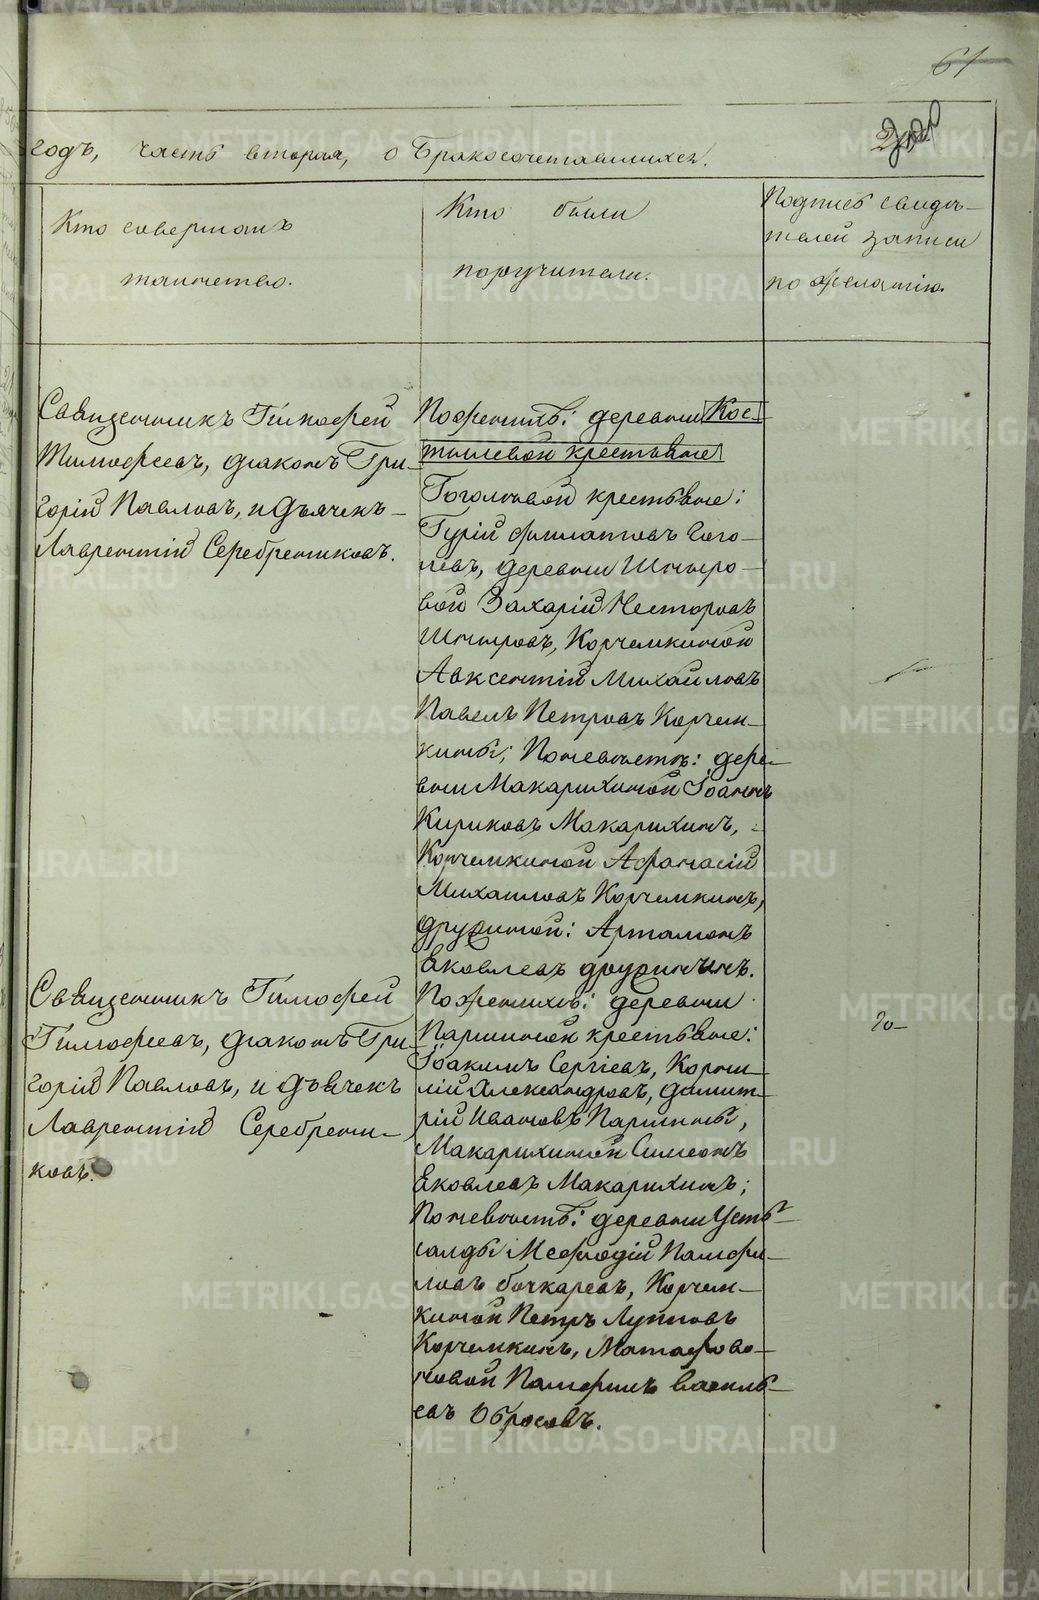 61
годъ, часть вторая, о Бракосочетавшихся.
Кто совершалъ
таинство.
Кто были
поручители.
Подпись свидѣ-
телей записи
по желанію.
Священникъ Тимофей
Тимофеевъ, діаконъ Гри-
горій Павловъ, и дьячекъ
Лаврентій Серебрениковъ.
По женихѣ: деревни Кос-
тылевой крестьяне
Гоголевой крестьяне:
Гурій Филатовъ Гого-
левъ, деревни Шмыро-
вой Захарій Несторовъ
Шмыровъ, Корчемкиной
Авксентій Михайловъ
Павелъ Петровъ Корчем-
кины; По невѣстѣ: дере-
вни Макарихиной Іоаннъ
Кириковъ Макарихинъ,
Корчемкиной Афанасій
Михаиловъ Корчемкинъ,
дружиной: Артамонъ
Яковлевъ дружининъ.
Священникъ Тимофей
Тимофеевъ, діаконъ Гри-
горій Павловъ, и дьячекъ
Лаврентій Серебрени-
ковъ.
По женихѣ: деревни
Паршиной крестьяне:
Іоакимъ Сергіевъ, Корни-
лій Александровъ, Димит-
рій Ивановъ Паршины,
Макарихиной Симеонъ
Яковлевъ Макарихинъ;
По невѣстѣ: деревни Усть-
салды Мефодій Памфи-
ловъ бочкаревъ, Корчем-
киной Петръ Лупповъ
Корчемкинъ,
новой Памфилъ Василь-
евъ
METRIKI.GASO-URAL.RU